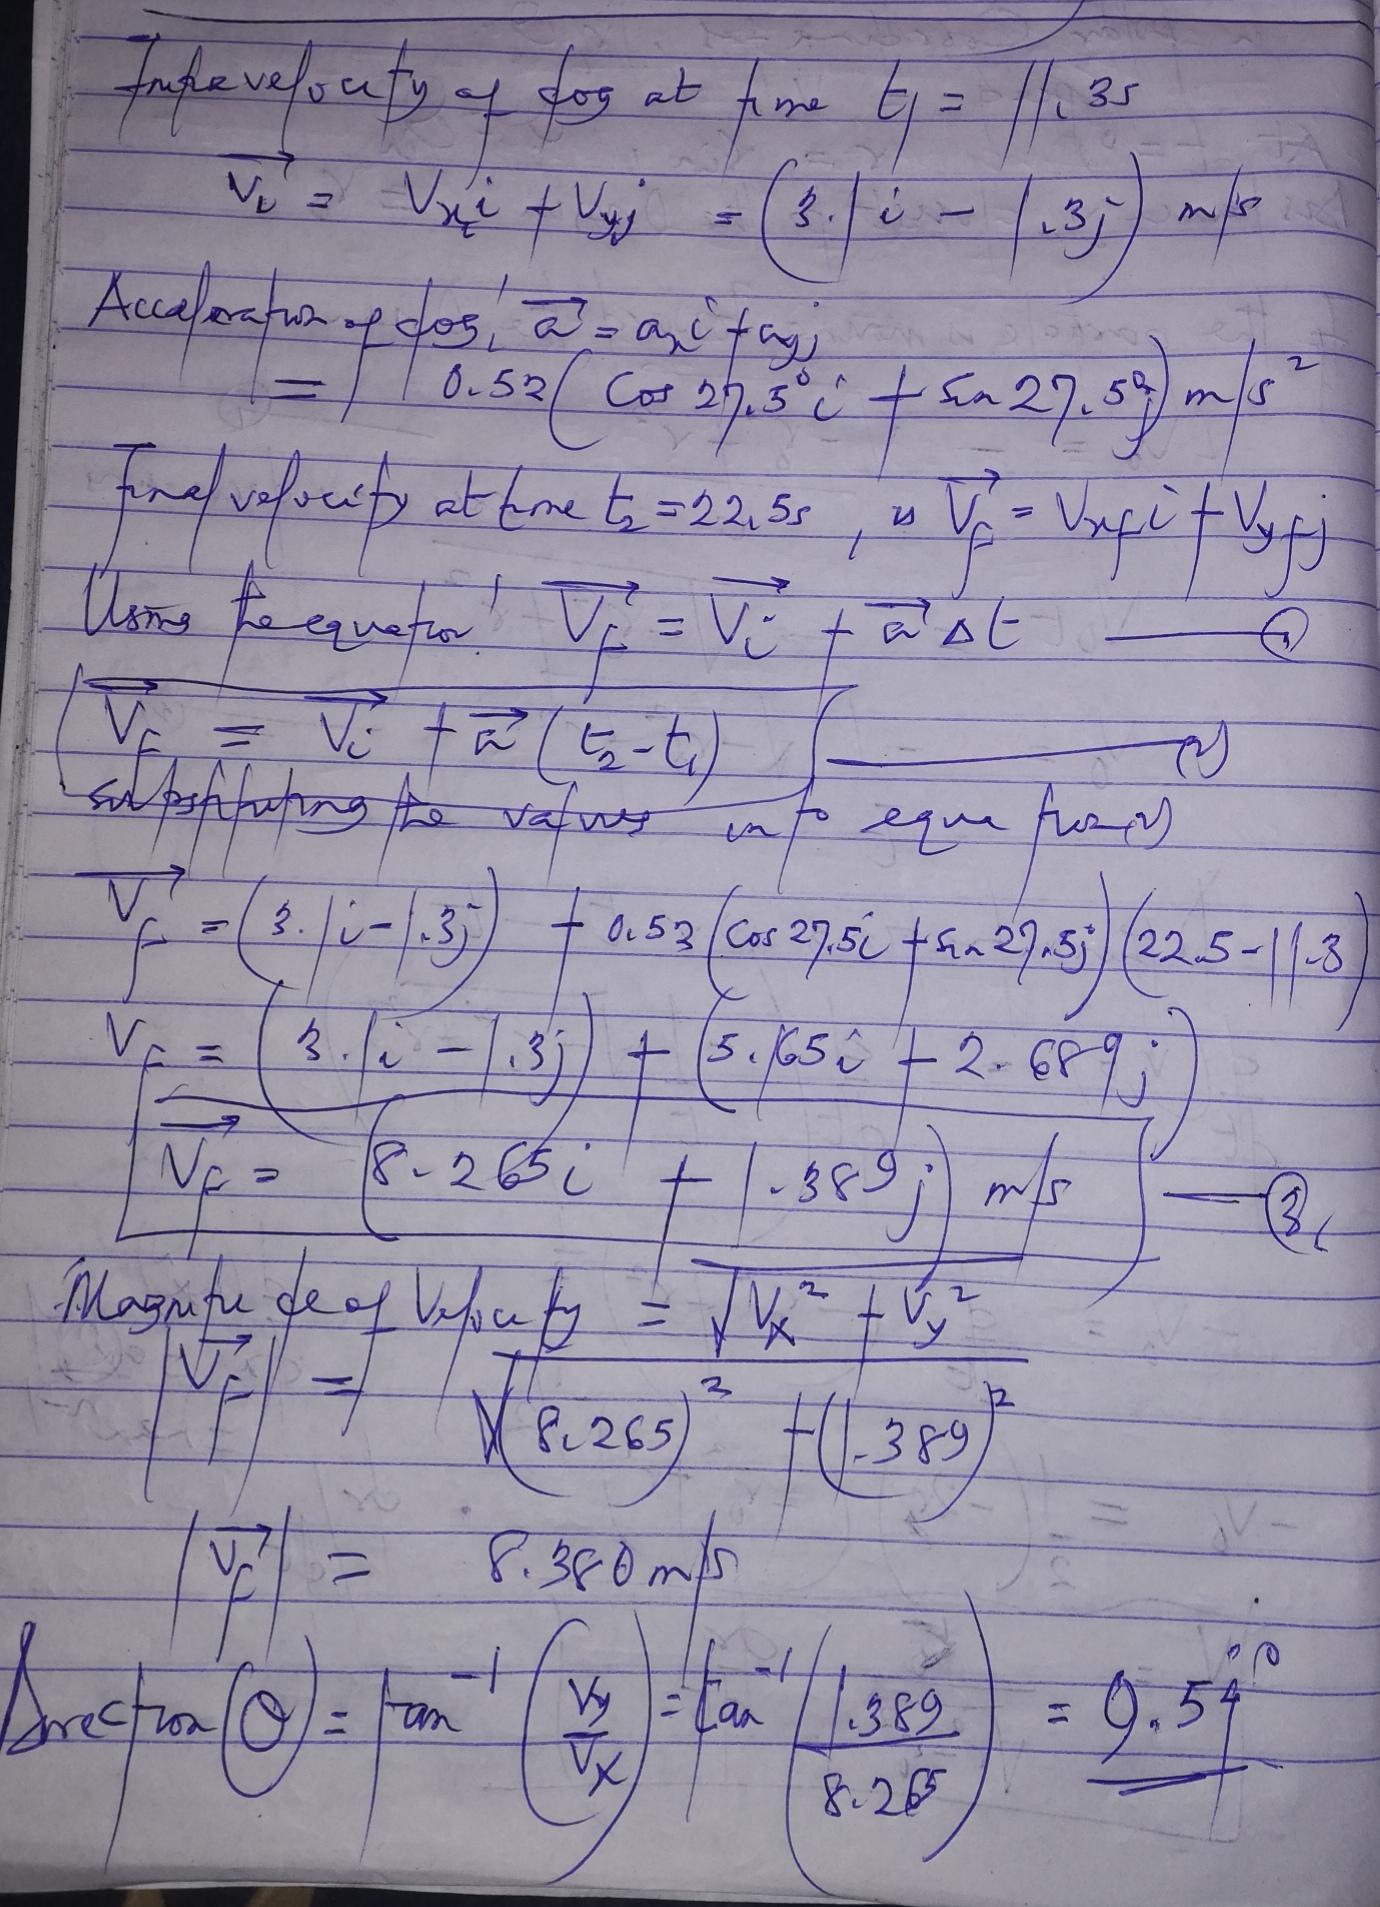 Initial velocity of dog at time t₁ = 11.3s
V⃗ᵢ = Vₓᵢi + Vyj = (3.1i - 1.3j) m/s
Acceleration of dog, a⃗ = aₓi + ayj
= 0.53(Cos 27.5°i + Sin 27.5°j) m/s²
Final velocity at time t₂ = 22.5s, is V⃗f = Vxfi + Vyfj
Using the equation V⃗f = V⃗i + a⃗ Δt — (1)
V⃗f = V⃗i + a⃗ (t₂ - t₁) — (2)
substituting the values into equation (2)
V⃗f = (3.1i - 1.3j) + 0.53(Cos 27.5i + Sin 27.5j)(22.5 - 11.3)
Vf = (3.1i - 1.3j) + (5.165i + 2.689j)
V⃗f = (8.265i + 1.389j) m/s — (3)
Magnitude of Velocity = √Vx² + Vy²
|V⃗f| = √(8.265)² + (1.389)²
|V⃗f| = 8.380 m/s
Direction (θ) = tan⁻¹ (Vy/Vx) = tan⁻¹ (1.389/8.265) = 9.54°